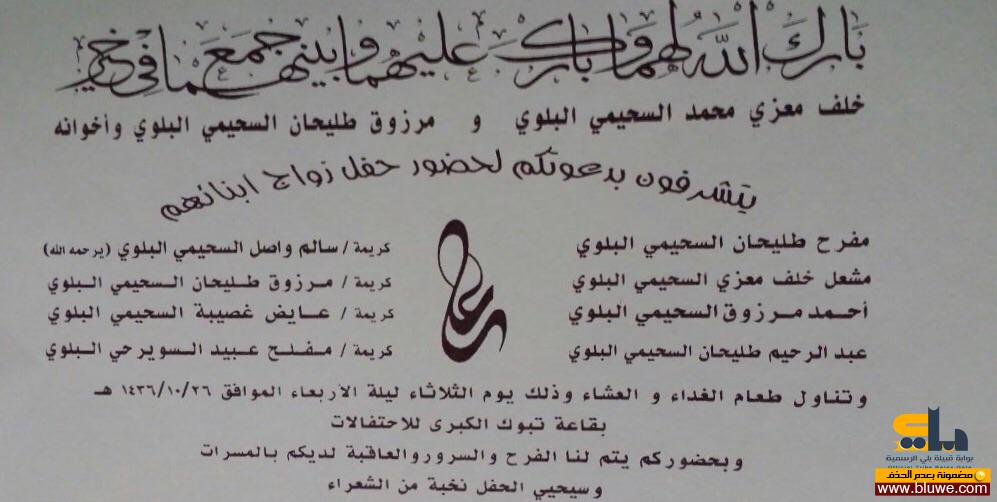 بارك الله لهما وبارك عليهما وجمع بينهما في خير
خلف معزي محمد السحيمي البلوي و مرزوق طليحان السحيمي البلوي وأخوانه
يتشرفون بدعوتكم لحضور حفل زواج ابنائهم
مفرح طليحان السحيمي البلوي على كريمة / سالم واصل السحيمي البلوي (يرحمه الله)
مشعل خلف معزي السحيمي البلوي كريمة / مرزوق طليحان السحيمي البلوي
أحمد مرزوق السحيمي البلوي كريمة / عايض غصيبة السحيمي البلوي
عبد الرحيم طليحان السحيمي البلوي كريمة / مفلح عبيد السويرحي البلوي
وتناول طعام الغداء و العشاء وذلك يوم الثلاثاء ليلة الأربعاء الموافق ١٤٣٦/١٠/٢٦ هـ
بقاعة تبوك الكبرى للاحتفالات
وبحضوركم يتم لنا الفرح والسرور والعاقبة لديكم بالمسرات
وسيحيي الحفل نخبة من الشعراء
بلي
بوابة قبيلة بلي الرسمية
مضمونة بعدم الحذف
www.bluwe.com